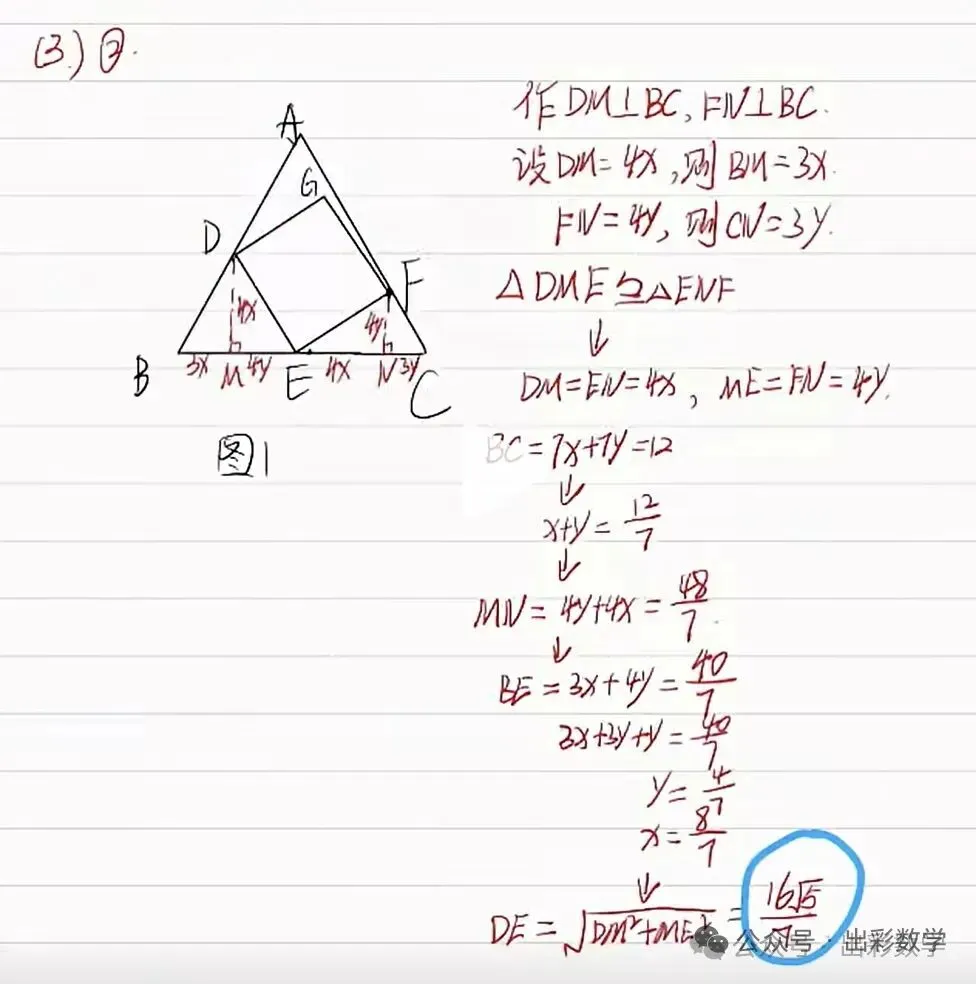 (3.) ②.
A
G
D
F
4x
4y
B
3x M 4y E 4x N 3y
C
图1
作DM⊥BC, FN⊥BC.
设DM=4x, 则BM=3x.
FN=4y, 则CN=3y.
△DME≌△ENF
↓
DM=EN=4x, ME=FN=4y.
BC=7x+7y=12
↓
x+y=12/7
↓
MN=4y+4x=48/7.
↓
BE=3x+4y=40/7
3x+3y+y=40/7
y=4/7
x=8/7
↓
DE=√(DM²+ME²)=16√5/7
公众号·出彩数学